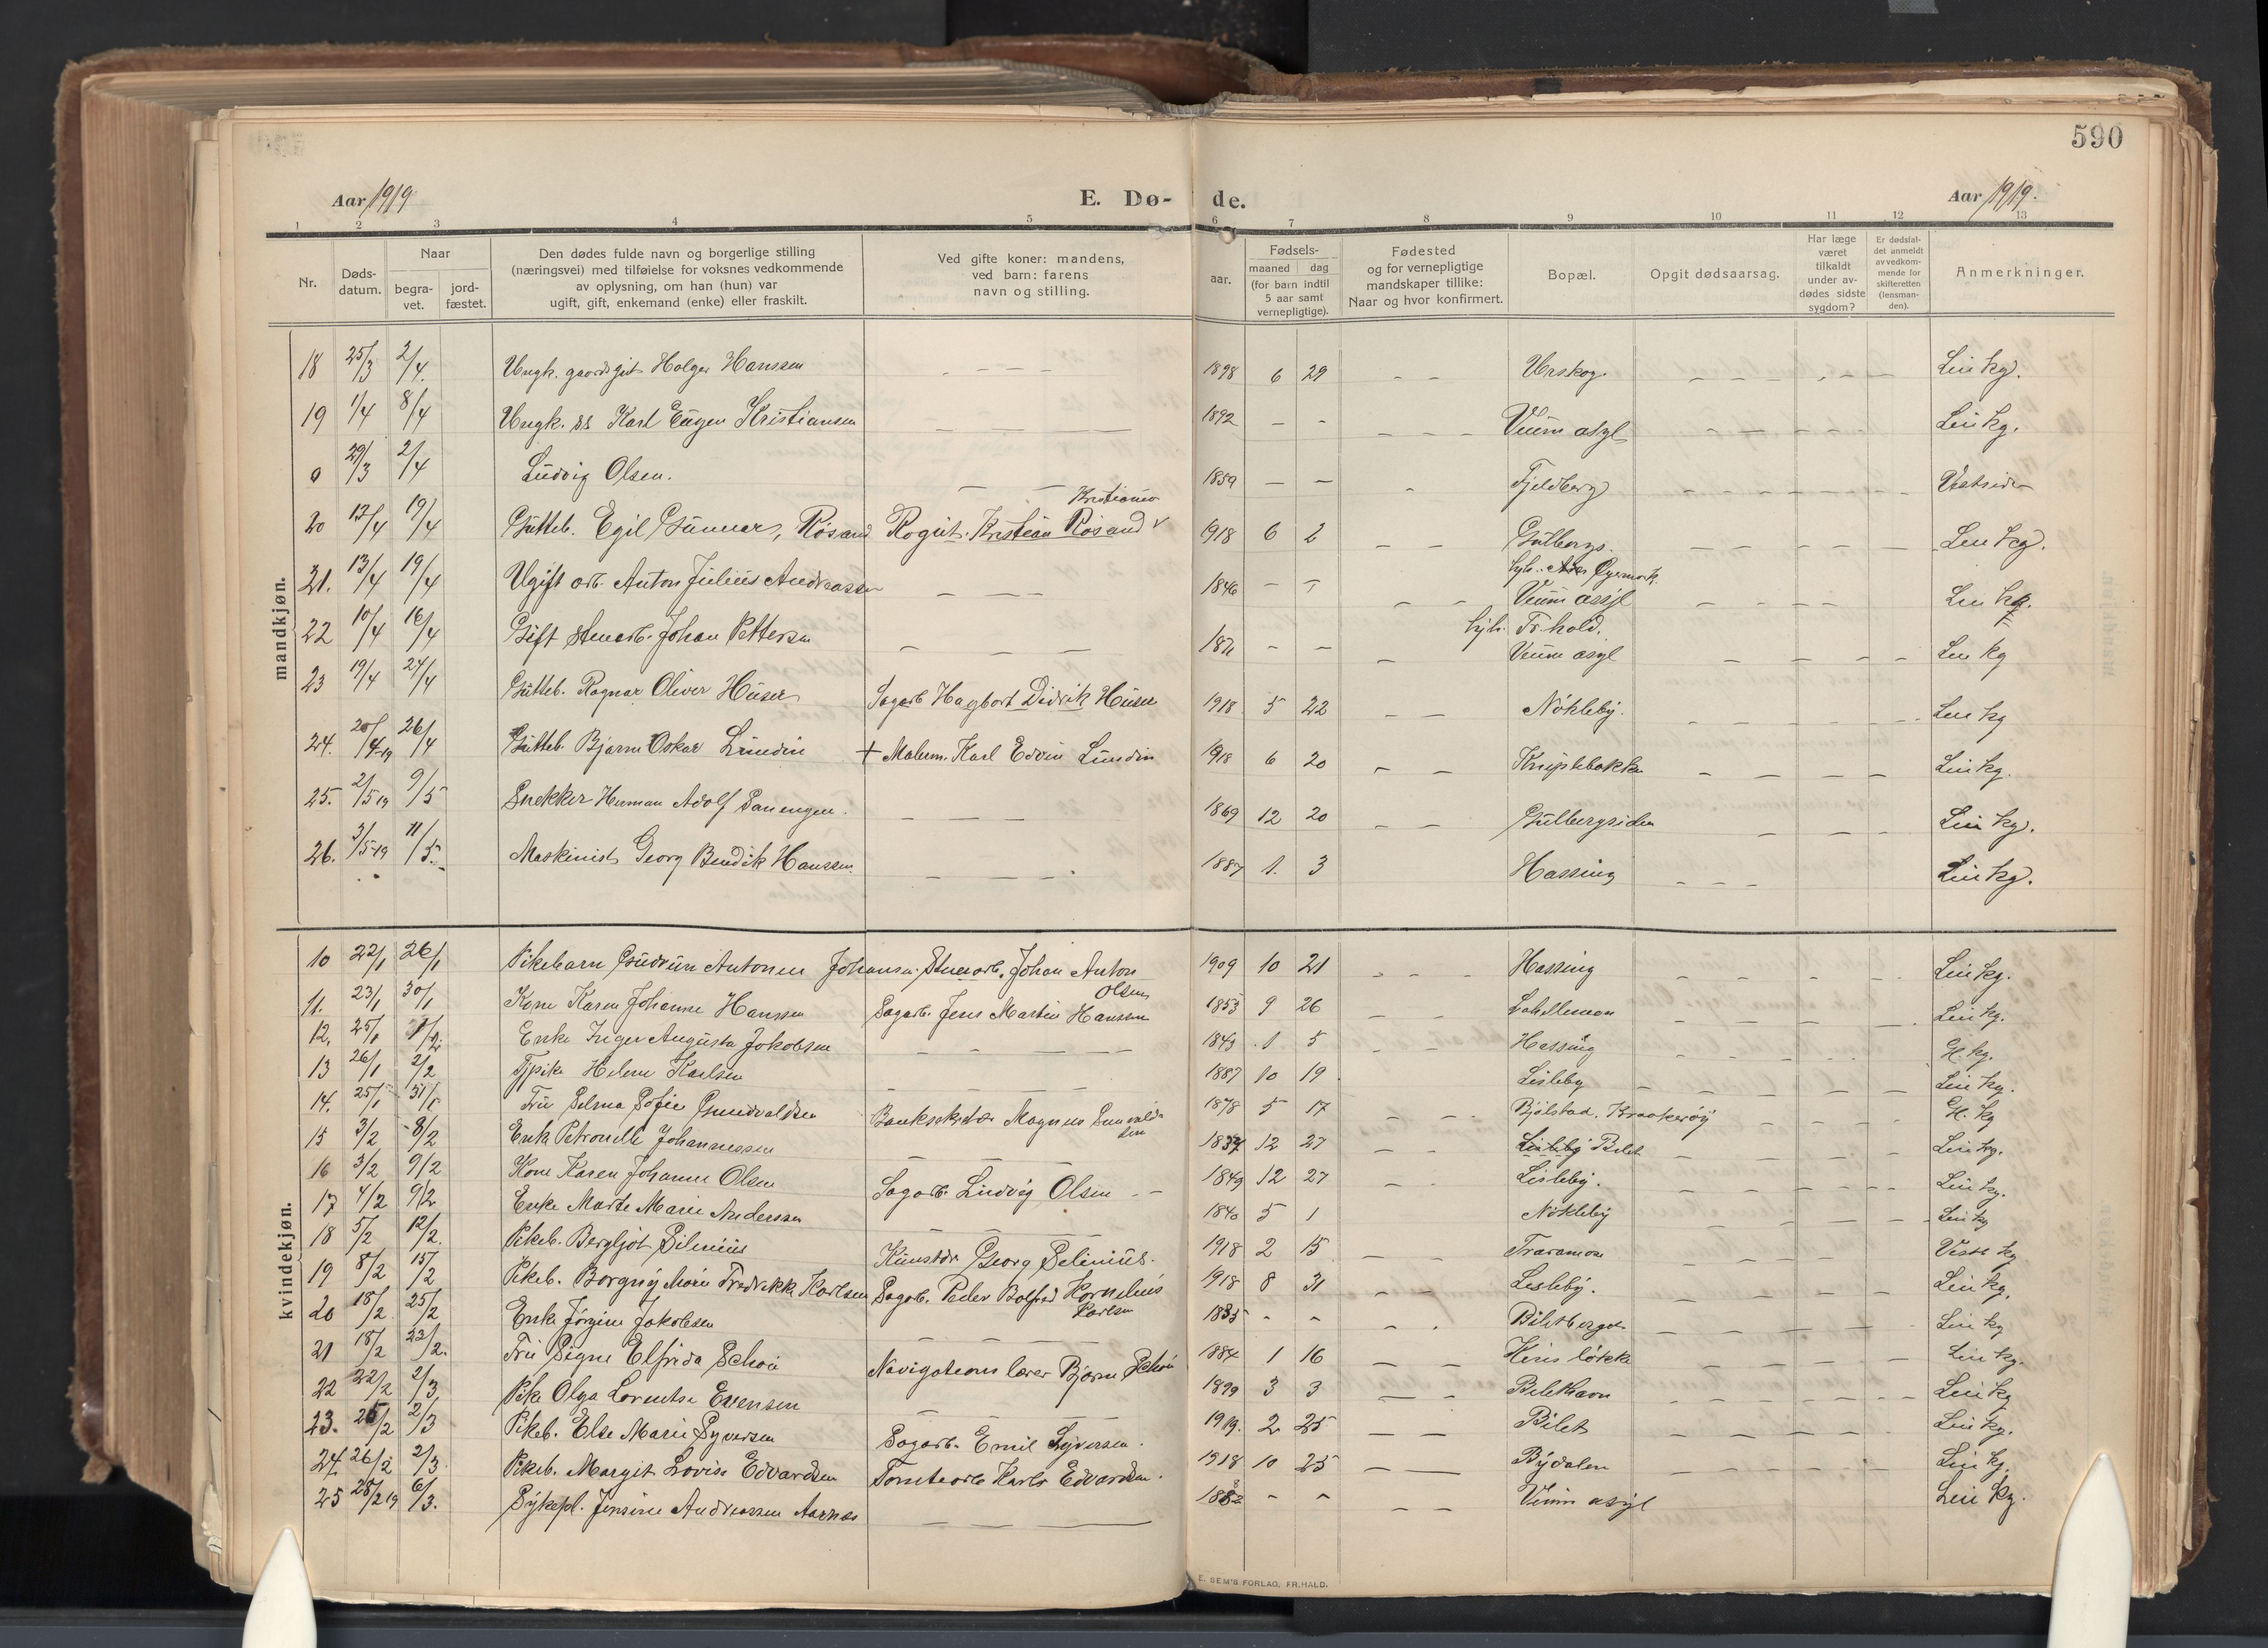 590
Aar 1919
E. Dø-
de.
Aar 1919.
1 2 3 4 5 6 7 8 9 10 11 12 13
Nr.
Døds-
datum.
Naar
begra-
vet.
jord-
fæstet.
Den dødes fulde navn og borgerlige stilling
(næringsvei) med tilføielse for voksnes vedkommende
av oplysning, om han (hun) var
ugift, gift, enkemand (enke) eller fraskilt.
Ved gifte koner: mandens,
ved barn: farens
navn og stilling.
aar.
Fødsels-
maaned dag
(for barn indtil
5 aar samt
vernepligtige).
Fødested
og for vernepligtige
mandskaper tillike:
Naar og hvor konfirmert.
Bopæl.
Opgit dødsaarsag.
Har læge
været
tilkaldt
under av-
dødes sidste
sygdom?
Er dødsfal-
det anmeldt
av vedkom-
mende for
skifteretten
(lensman-
den).
Anmerkninger.
mandkjøn.
18 25/3 2/4. Ungk. gaardsgut Holger Hanssen 1898 6 29 Urskog. Lei kg.
19 1/4 8/4 Ungk. ss Karl Eugen Kristiansen 1892 Veum asyl Lei kg.
0 29/3 2/4 Ludvig Olsen. 1859 Fjeldberg Vestsiden
Kristiansen
20 12/4 19/4 Gutteb. Egil Gunnar, Rösand Rogut. Kristian Rösand 1918 6 2 Gulbergs. Lei kg.
hjh. Øyemark.
21. 13/4 19/4 Ugift arb. Anton Julius Andreassen 1846 Veum asyl Lei kg.
hjh. Fr.hald.
22 10/4 16/4 Gift stenarb. Johan Pettersen 1871 Veum asyl Lei kg
23 19/4 24/4 Gutteb. Ragnar Oliver Huser Sagarb Hagbart Didrik Huser 1918 5 22 Nökleby. Lei kg
24. 20/4-19 26/4 Gutteb. Bjarne Oskar Lundin + Malerm. Karl Edvin Lundin 1918 6 20 Kniplebakke Lei kg.
25. 2/5 19 9/5 Snekker Herman Adolf Sanengen. 1869 12 20 Gulbergsiden Lei kg.
26. 3/5-19 11/5. Maskinist Georg Bendik Hanssen. 1887 1. 3 Hassing Lei kg.
kvindekjøn.
10 22/1 26/1 Pikebarn Gudrun Antonie Johansen. Stenarb. Johan Anton 1909 10 21 Hassing Lei kg.
Olsen
11. 23/1 30/1 Kone Karen Johanne Hanssen Sagarb. Jens Martin Hanssen 1853 9 26 Lahellemoen Lei kg.
12. 25/1 1/2. Enke Inger Augusta Jakobsen 1843 1 5 Hassing Gl. kg.
13 26/1 2/2 Tjpike Helene Karlsen 1887 10 19 Lisleby Lei kg.
14. 25/1 31/1 Fru Selma Sofie Gundvaldsen Banksekretær Magnus Gunvald- 1878 5 17 Bjølstad. Kraakerøy Gl. kg
sen
15 3/2 8/2 Enke Petronelle Johannessen 1834 12 27 Lisleby Bilet Lei kg.
16 3/2 9/2 Kone Karen Johanne Olsen Sagarb. Ludvig Olsen 1849 12 27 Lisleby. Lei kg.
17 4/2 9/2 Enke Marte Marie Andersen 1840 5 1 Nökleby Lei kg
18 5/2 12/2. Pikeb. Bergljot Silenius Kunstdr. Georg Selenius. 1918 2 15 Traramoen Vestre kg
19 8/2 15/2 Pikeb. Borgny Marie Fredrikke Karlsen Sagarb. Peder Bolfred Kornelius 1918 8 31 Lisleby. Lei kg.
Karlsen
20 18/2 25/2 Enke Jørgine Jakobsen 1835 Biletberget Lei kg
21 18/2 22/2. Fru Signe Elfrida Schou Navigationslærer Bjarne Schou 1884 1 16 Hens løkke Lei kg.
22 22/2 2/3 Pike Olga Lorentse Evensen 1899 3 3 Bilethavn Lei kg
23. 25/2 2/3 Pikeb. Else Marie Syversen Sagarb. Emil Syversen. 1919. 2 25 Bilet Lei kg.
24 26/2 2/3 Pikeb. Margit Lovise Edvardsen Tomtearb Karls Edvardsen. 1918 10 25 Bydalen Lei kg.
25 28/2 19 6/3. Sykepl. Jensine Andreassen Aarnes 1882 Veum asyl Lei kg.
E. SEM'S FORLAG, FR.HALD.